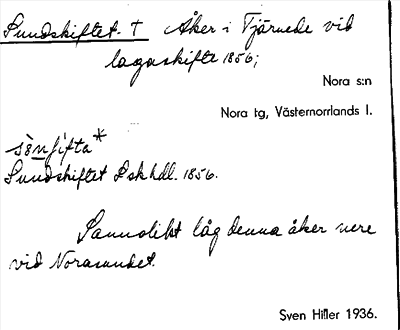 Sundskiftet. † Åker i Tjärnede vid
lagaskifte 1856;
Nora s:n
Nora tg, Västernorrlands l.
sènfifta*
Sundskiftet Lskhdl. 1856.
Sannolikt låg denna åker nere
vid Norasundet.
Sven Hiller 1936.